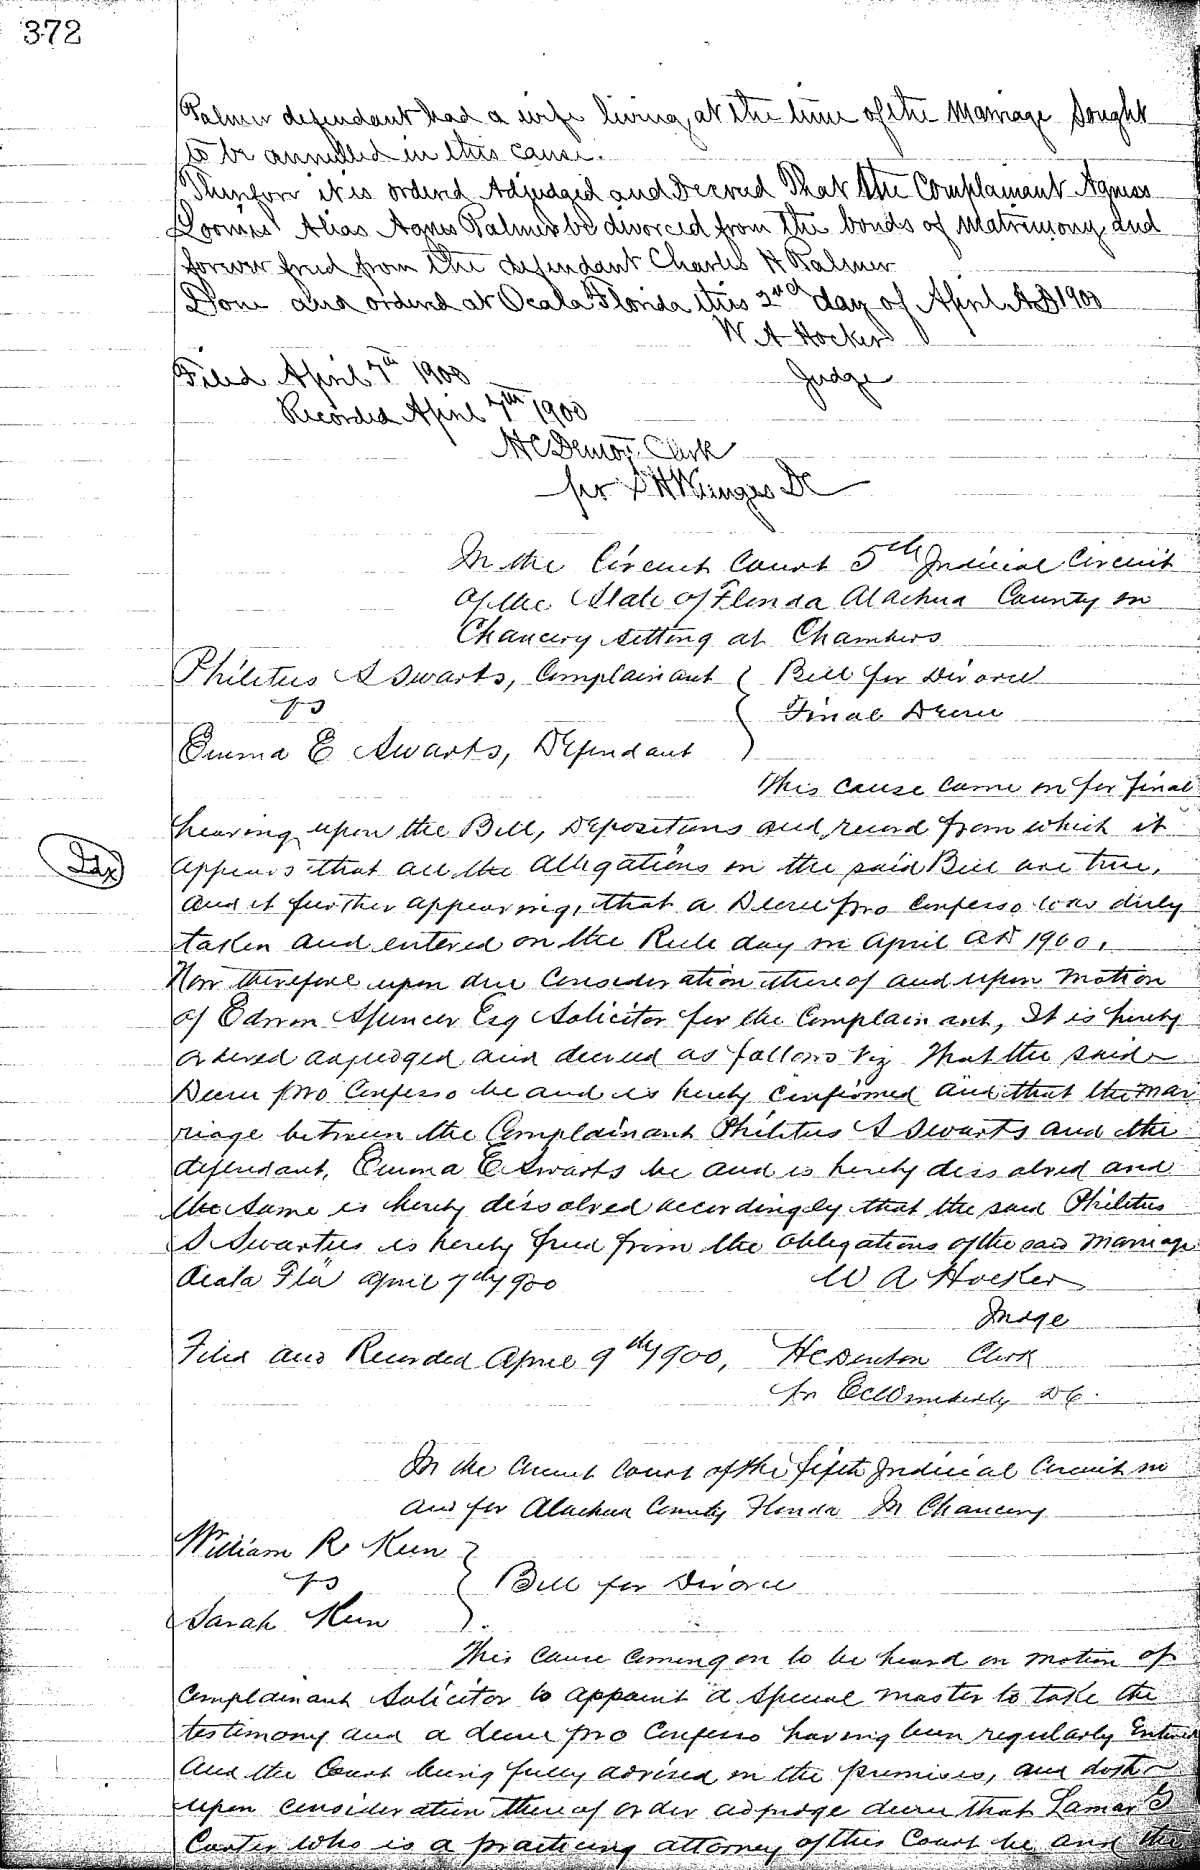 372
Palmer defendant had a wife living, at the time of the Marriage Sought
to be annulled in this cause.
Therefore it is ordered Adjudged and Decreed That the Complainant Agness
Loomis Alias Agnes Palmer be divorced from the bonds of Matrimony and
forever freed from the defendant Charles H Palmer
Done and ordered at Ocala Florida this 2nd day of April AD 1900
W A Hocker
Judge
Filed April 7th 1900
Recorded April 7th 1900
H C Denton Clerk
per S H Wienges DC
In the Circuit Court 5th Judicial Circuit
of the State of Florida Alachua County in
Chancery sitting at Chambers
Philetus S Swarts, Complainant } Bill for Divorce
vs } Final Decree
Emma E Swarts, Defendant }
This cause came on for final
hearing upon the Bill, Depositions and record from which it
appears that all the allegations in the said Bill are true,
and it further appearing, that a Decree pro Confesso was duly
taken and entered on the Rule day in April AD 1900,
Now therefore upon due Consideration thereof and upon motion
of Edwin Spencer Esq Solicitor for the Complainant, It is hereby
ordered adjudged and decreed as follows viz That the said
Decree pro Confesso be and is hereby confirmed and that the mar
riage between the Complainant Philetus S Swarts and the
defendant, Emma E Swarts be and is hereby dissolved and
the same is hereby dissolved accordingly that the said Philetus
S Swartus is hereby freed from the obligations of the said marriage
Ocala Fla April 7th 1900 W A Hocker
Judge
Filed and Recorded April 9th 1900, H C Denton Clerk
pr DC.
In the Circuit Court of the fifth Judicial Circuit in
and for Alachua County Florida In Chancery
William R Keen }
vs } Bill for Divorce
Sarah Keen }
This cause coming on to be heard on motion of
Complainant Solicitor to appoint a special master to take the
testimony and a decree pro Confesso having been regularly Entered
and the Court being fully advised in the premises, and doth
upon consideration thereof order adjudge decree that Lamar G
Carter who is a practicing attorney of this Court be and the